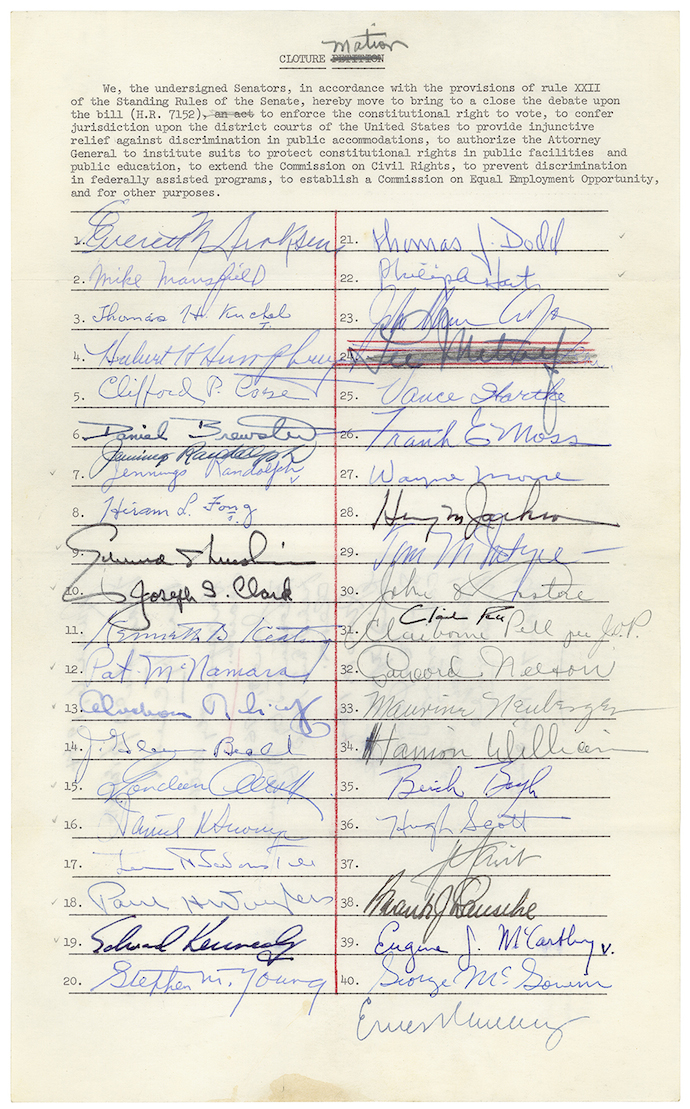 Motion
CLOTURE PETITION
We, the undersigned Senators, in accordance with the provisions of rule XXII
of the Standing Rules of the Senate, hereby move to bring to a close the debate upon
the bill (H.R. 7152), an act to enforce the constitutional right to vote, to confer
jurisdiction upon the district courts of the United States to provide injunctive
relief against discrimination in public accommodations, to authorize the Attorney
General to institute suits to protect constitutional rights in public facilities and
public education, to extend the Commission on Civil Rights, to prevent discrimination
in federally assisted programs, to establish a Commission on Equal Employment Opportunity,
and for other purposes.
1. Everett M Dirksen
2. Mike Mansfield
3. Thomas H. Kuchel
4. Hubert H Humphrey
5. Clifford P. Case
6. Daniel Brewster
Jennings Randolph
7. Jennings Randolph
8. Hiram L. Fong
9. Edmund S Muskie
10. Joseph S. Clark
11. Kenneth B Keating
12. Pat McNamara
13. Abraham Ribicoff
14. J. Glenn Beall
15. Gordon Allott
16. Daniel K Inouye
17. Saltonstall
18. Paul H Douglas
19. Edward Kennedy
20. Stephen M. Young
21. Thomas J. Dodd
22. Philip A Hart
23. John Sherman Cooper
24. Lee Metcalf
25. Vance Hartke
26. Frank E Moss
27. Wayne Morse
28. Henry M Jackson
29. Tom McIntyre
30. John O Pastore
Claiborne Pell
31. Claiborne Pell per J.D.P.
32. Gaylord Nelson
33. Maurine Neuberger
34. Harrison Williams
35. Birch Bayh
36. Hugh Scott
37.
38. Frank J Lausche
39. Eugene J. McCarthy
40. George McGovern
Ernest Gruening